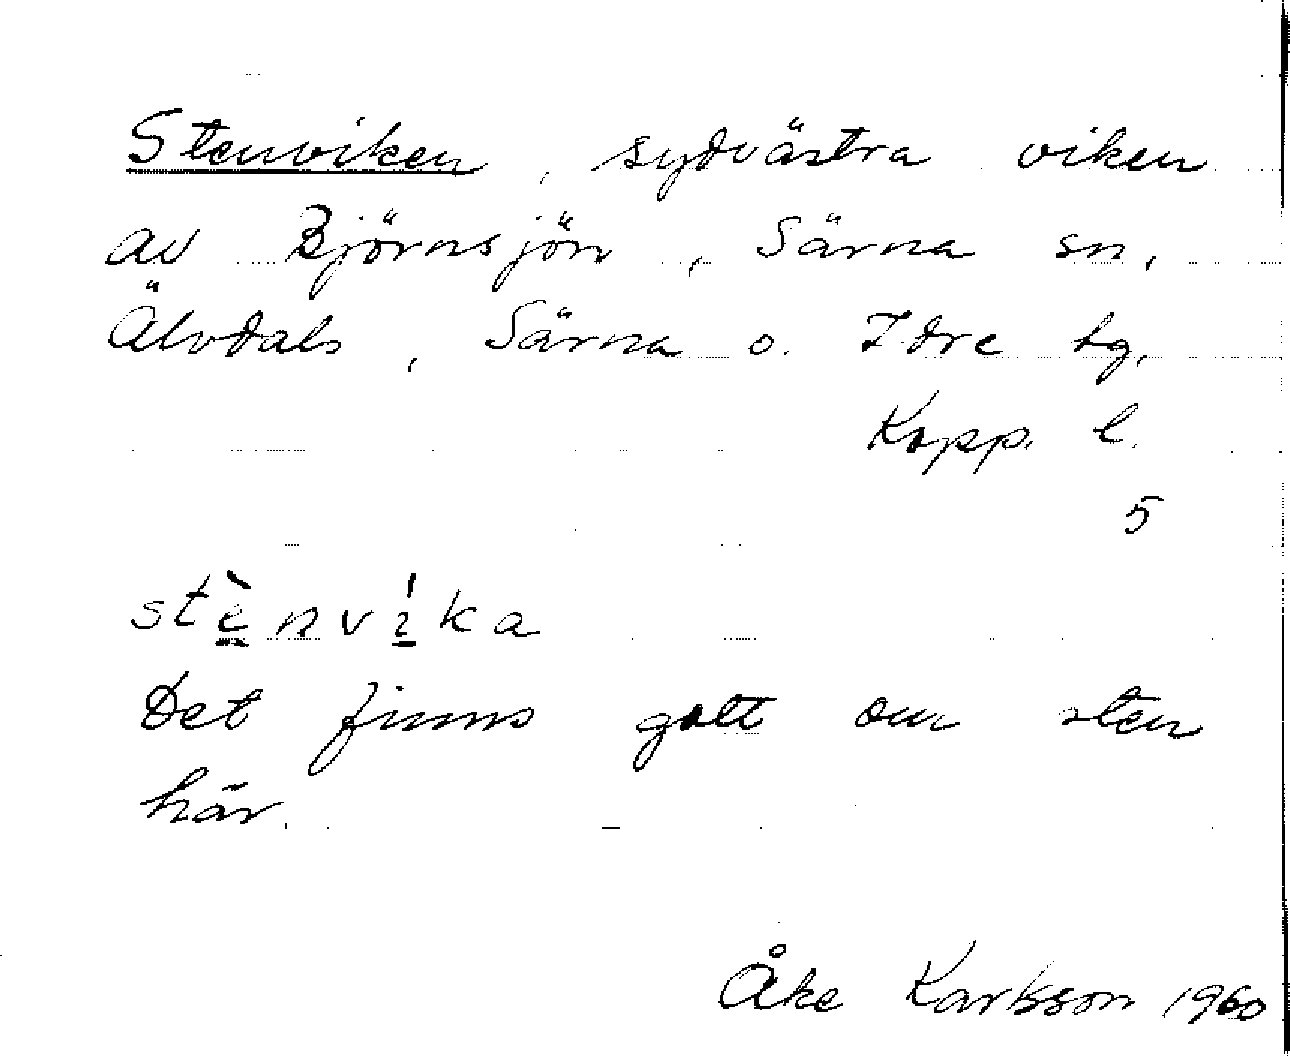 Stenviken, sydvästra viken
av Björnsjön, Särna sn,
Älvdals, Särna o. Idre tg,
Kopp. l.
5
stè̱nvı̱́ka
Det finns gott om sten
här.
Åke Karlsson 1960